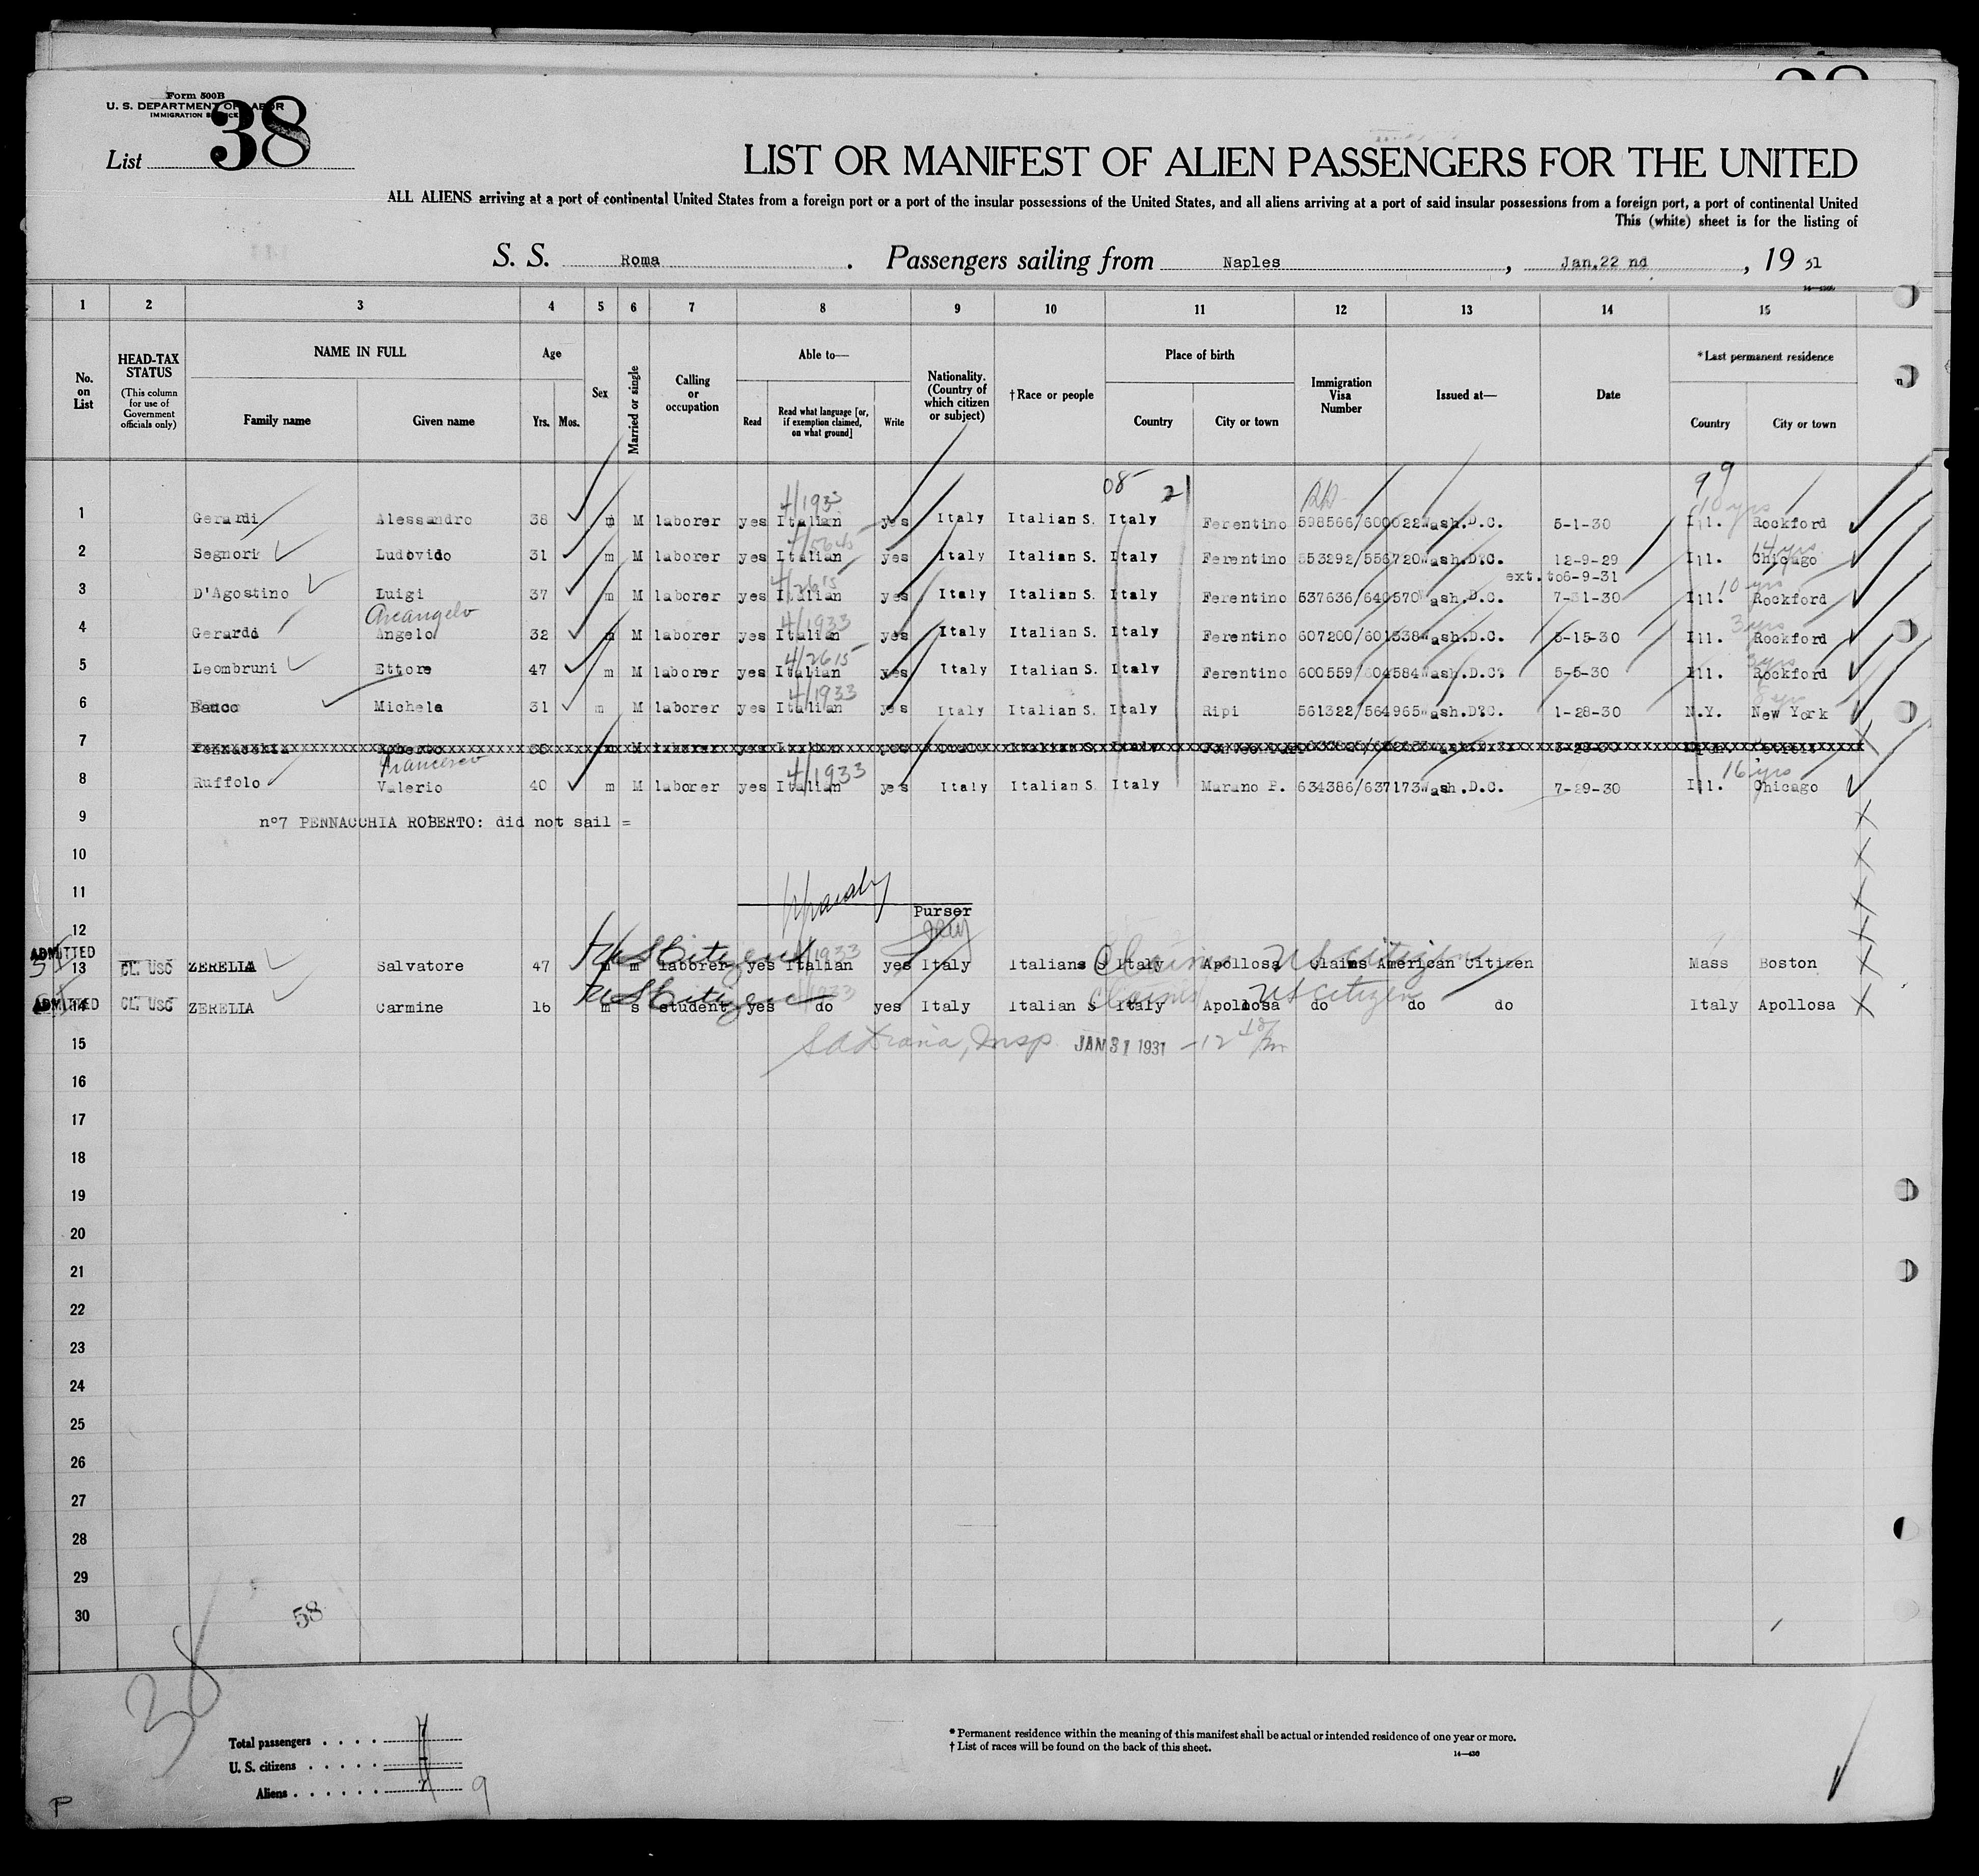 Form 500B
U. S. DEPARTMENT OF LABOR
IMMIGRATION SERVICE
List 38
LIST OR MANIFEST OF ALIEN PASSENGERS FOR THE UNITED
ALL ALIENS arriving at a port of continental United States from a foreign port or a port of the insular possessions of the United States, and all aliens arriving at a port of said insular possessions from a foreign port, a port of continental United
This (white) sheet is for the listing of
S. S. Roma. Passengers sailing from Naples, Jan.22 nd, 19 31
1 2 3 4 5 6 7 8 9 10 11 12 13 14 15
No. on List
HEAD-TAX STATUS (This column for use of Government officials only)
NAME IN FULL Family name Given name
Age Yrs. Mos.
Sex
Married or single
Calling or occupation
Able to— Read Read what language [or, if exemption claimed, on what ground] Write
Nationality. (Country of which citizen or subject)
†Race or people
Place of birth Country City or town
Immigration Visa Number
Issued at—
Date
*Last permanent residence Country City or town
08 21 99
4/1933 10 yrs
1 Gerardi Alessandro 38 m M laborer yes Italian yes Italy Italian S. Italy Ferentino 598566/600022 Wash.D.C. 5-1-30 Ill. Rockford
4/5645 14 yrs
2 Segnori Ludovido 31 m M laborer yes Italian yes Italy Italian S. Italy Ferentino 553292/556720 Wash.D.C. 12-9-29 Ill. Chicago
ext.to6-9-31
4/2615 10 yrs
3 D'Agostino Luigi 37 m M laborer yes Italian yes Italy Italian S. Italy Ferentino 537636/640570 Wash.D.C. 7-31-30 Ill. Rockford
Arcangelo 4/1933 3 yrs
4 Gerardi Angelo 32 m M laborer yes Italian yes Italy Italian S. Italy Ferentino 607200/601538 Wash.D.C. 5-15-30 Ill. Rockford
4/2615 3 yrs
5 Leombruni Ettore 47 m M laborer yes Italian yes Italy Italian S. Italy Ferentino 600559/604584 Wash.D.C. 5-5-30 Ill. Rockford
4/1933
6 Bauco Michele 31 m M laborer yes Italian yes Italy Italian S. Italy Ripi 561322/564965 Wash.D.C. 1-28-30 N.Y. New York
7 Pennacchia Roberto
Francesco 4/1933 16 yrs
8 Ruffolo Valerio 40 m M laborer yes Italian yes Italy Italian S. Italy Marano P. 634386/637173 Wash.D.C. 7-29-30 Ill. Chicago
9 n°7 PENNACCHIA ROBERTO: did not sail =
10
11
Purser
12
ADMITTED US Citizen 1933 Claims US citizen
13 CL. USC ZERELLA Salvatore 47 m m laborer yes Italian yes Italy Italians S Italy Apollosa Claims American Citizen Mass Boston
ADMITTED US Citizen 1933 Claims US citizen
14 CL. USC ZERELLA Carmine 16 m s student yes do yes Italy Italian S Italy Apollosa do do do Italy Apollosa
15 Insp. JAN 31 1931
16
17
18
19
20
21
22
23
24
25
26
27
28
29
30
58
38
Total passengers
U. S. citizens
Aliens 9
* Permanent residence within the meaning of this manifest shall be actual or intended residence of one year or more.
† List of races will be found on the back of this sheet.
14—430
P